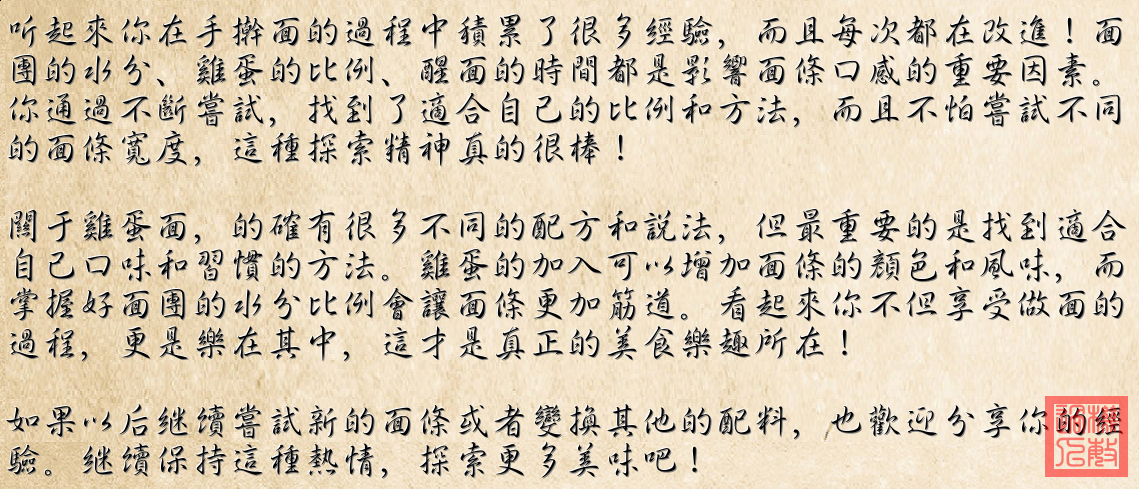 听起來你在手擀面的過程中積累了很多經驗，而且每次都在改進！面
團的水分、雞蛋的比例、醒面的時間都是影響面條口感的重要因素。
你通過不斷嘗試，找到了適合自己的比例和方法，而且不怕嘗試不同
的面條寬度，這種探索精神真的很棒！
關于雞蛋面，的確有很多不同的配方和説法，但最重要的是找到適合
自己口味和習慣的方法。雞蛋的加入可以增加面條的顔色和風味，而
掌握好面團的水分比例會讓面條更加筋道。看起來你不但享受做面的
過程，更是樂在其中，這才是真正的美食樂趣所在！
如果以后继續嘗試新的面條或者變換其他的配料，也歡迎分享你的經
驗。继續保持這種熱情，探索更多美味吧！